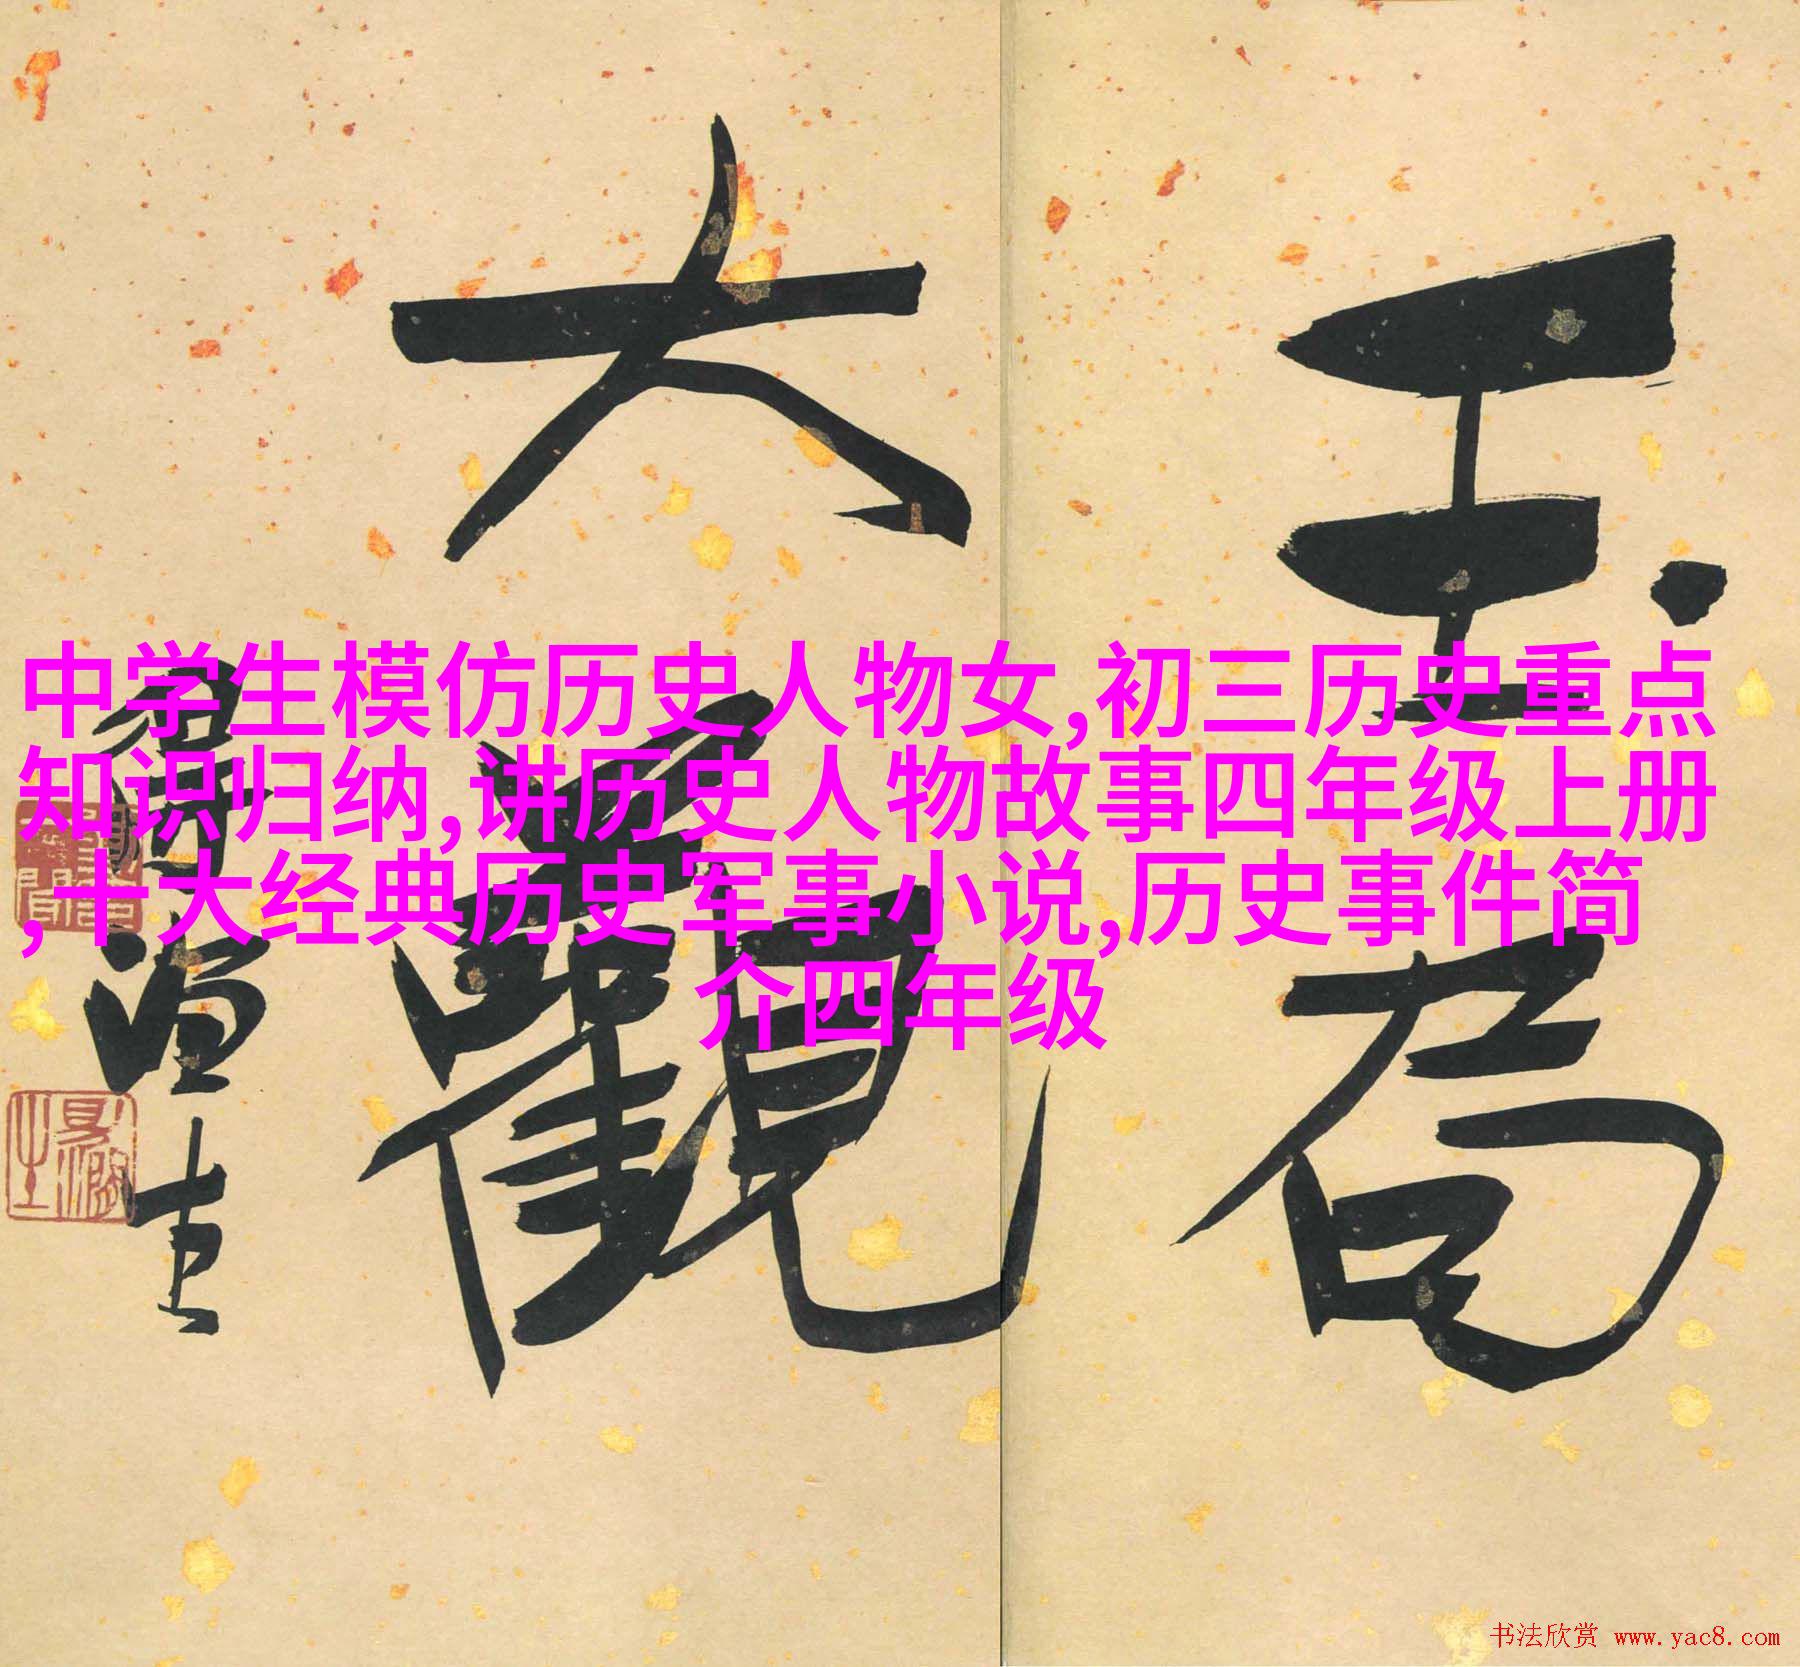 玉局
大觀
中学生模仿历史人物女,初三历史重点
知识归纳,讲历史人物故事四年级上册
,十大经典历史军事小说,历史事件简
介四年级
书法欣赏 www.yac8.com